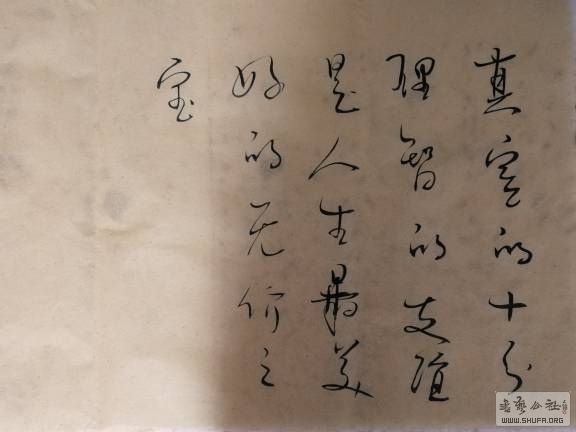 真实的十分
理智的友谊
是人生最美
好的无价之
宝
书艺公社
WWW.SHUFA.ORG